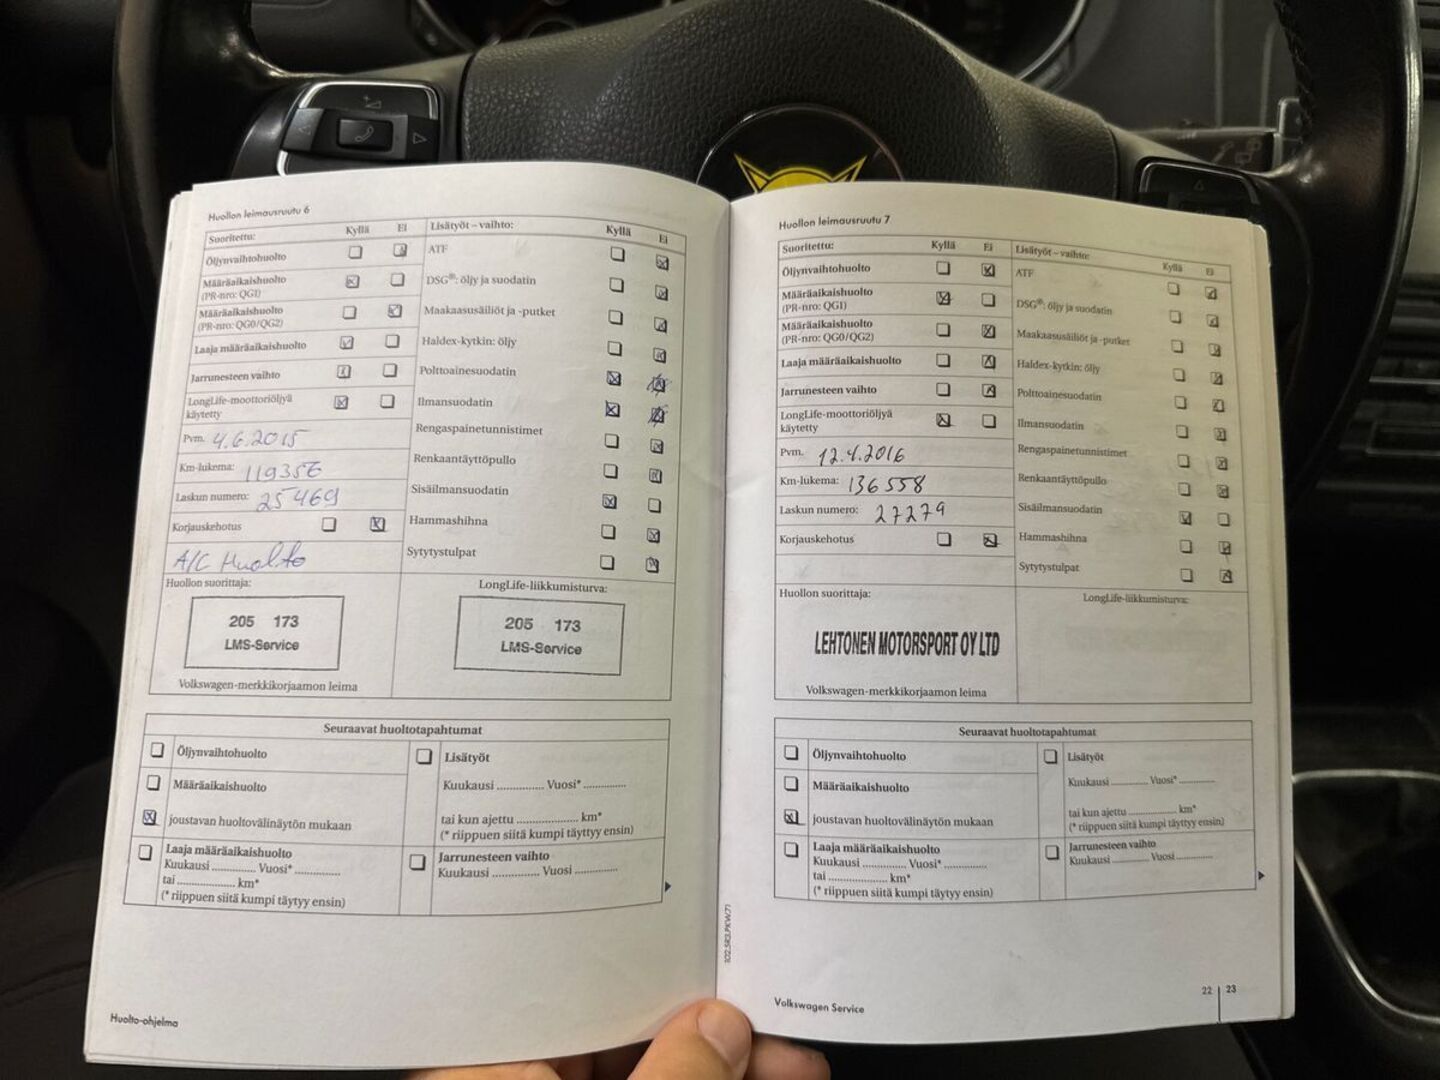 Huollon leimausruutu 6
Suoritettu: Kyllä Ei
Öljynvaihtohuolto
Määräaikaishuolto
(PR-nro: QG1)
Määräaikaishuolto
(PR-nro: QG0/QG2)
Laaja määräaikaishuolto
Jarrunesteen vaihto
LongLife-moottoriöljyä
käytetty
Pvm. 4.6.2015
Km-lukema: 119356
Laskun numero: 25469
Korjauskehotus
A/C Huolto
Huollon suorittaja:
205 173
LMS-Service
Volkswagen-merkkikorjaamon leima
Lisätyöt – vaihto: Kyllä Ei
ATF
DSG®: öljy ja suodatin
Maakaasusäiliöt ja -putket
Haldex-kytkin: öljy
Polttoainesuodatin
Ilmansuodatin
Rengaspainetunnistimet
Renkaantäyttöpullo
Sisäilmansuodatin
Hammashihna
Sytytystulpat
LongLife-liikkumisturva:
205 173
LMS-Service
Seuraavat huoltotapahtumat
Öljynvaihtohuolto
Määräaikaishuolto
joustavan huoltovälinäytön mukaan
Laaja määräaikaishuolto
Kuukausi .............. Vuosi* ..............
tai .................... km*
(* riippuen siitä kumpi täytyy ensin)
Lisätyöt
Kuukausi .............. Vuosi* .............
tai kun ajettu .................... km*
(* riippuen siitä kumpi täyttyy ensin)
Jarrunesteen vaihto
Kuukausi .............. Vuosi .............
Huolto-ohjelma
102.5R3.PKW.71
Huollon leimausruutu 7
Suoritettu: Kyllä Ei
Öljynvaihtohuolto
Määräaikaishuolto
(PR-nro: QG1)
Määräaikaishuolto
(PR-nro: QG0/QG2)
Laaja määräaikaishuolto
Jarrunesteen vaihto
LongLife-moottoriöljyä
käytetty
Pvm. 12.4.2016
Km-lukema: 136558
Laskun numero: 27279
Korjauskehotus
Huollon suorittaja:
LEHTONEN MOTORSPORT OY LTD
Volkswagen-merkkikorjaamon leima
Lisätyöt – vaihto: Kyllä Ei
ATF
DSG®: öljy ja suodatin
Maakaasusäiliöt ja -putket
Haldex-kytkin: öljy
Polttoainesuodatin
Ilmansuodatin
Rengaspainetunnistimet
Renkaantäyttöpullo
Sisäilmansuodatin
Hammashihna
Sytytystulpat
LongLife-liikkumisturva:
Seuraavat huoltotapahtumat
Öljynvaihtohuolto
Määräaikaishuolto
joustavan huoltovälinäytön mukaan
Laaja määräaikaishuolto
Kuukausi .............. Vuosi* ..............
tai .................... km*
(* riippuen siitä kumpi täytyy ensin)
Lisätyöt
Kuukausi ............ Vuosi* ............
tai kun ajettu ................ km*
(* riippuen siitä kumpi täyttyy ensin)
Jarrunesteen vaihto
Kuukausi ............ Vuosi ............
Volkswagen Service
22 | 23